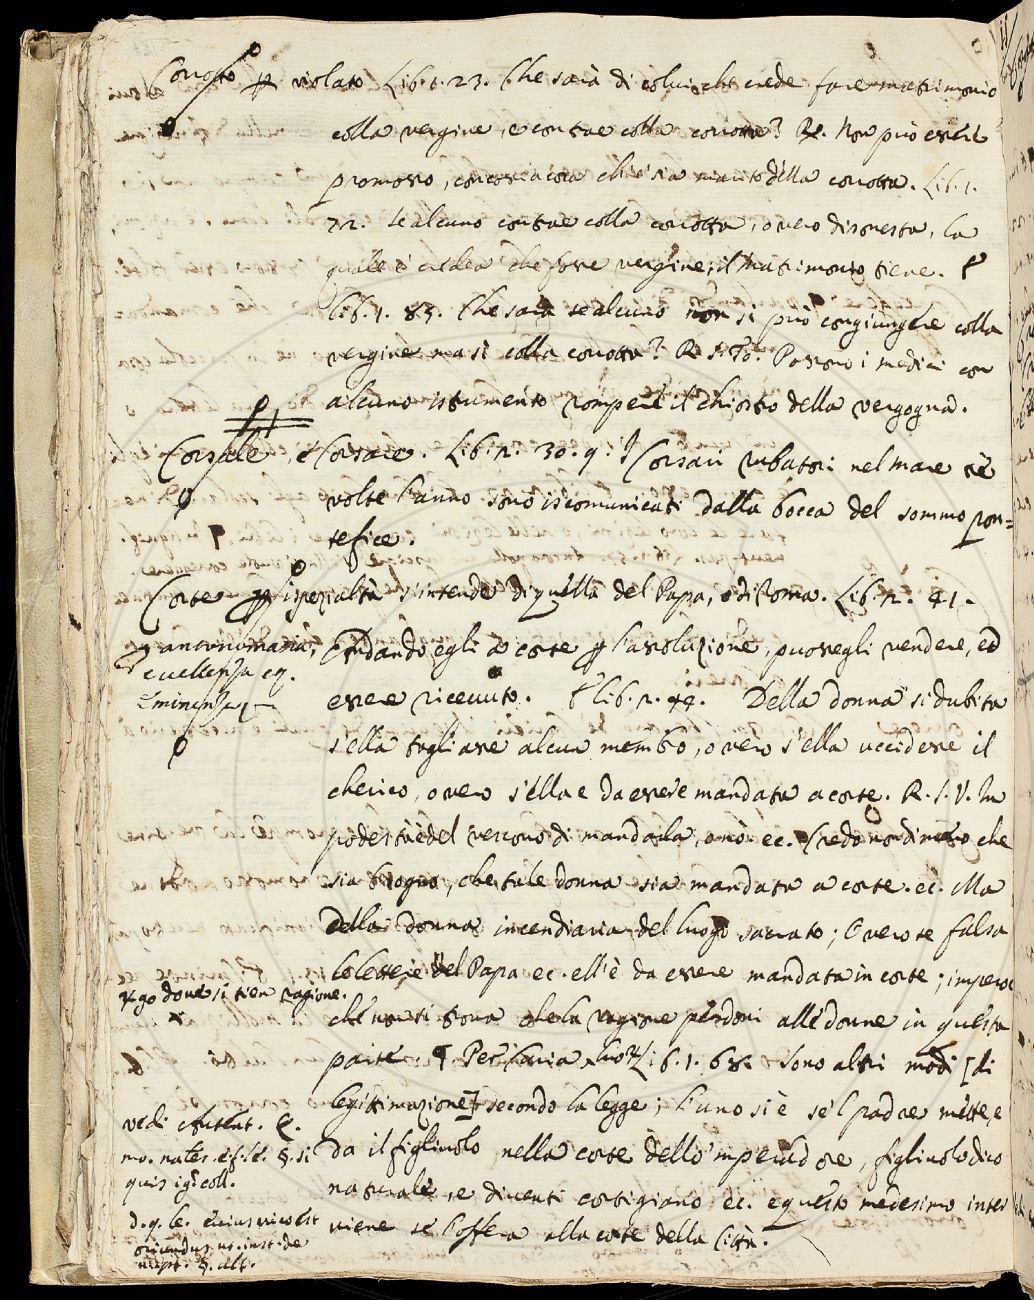 Corotto p violato Lib. 1. 23. Che sarà di colui che crede fare matrimonio
colla vergine, e contrae colla corotta? R. Non può essere
promosso, concossiacosa ch'è sia marito della corotta. Lib. 1.
72. Se alcuno contrae colla corotta, overo disonesta, la
quale è credea che fosse vergine, il matrimonio tiene. E
lib. 1. 85. Che sarà se alcuno non si può congiungere colla
vergine ma sì colla corotta? R. S. To. Possono i medici con
alcuno istrumento rompere il chiostro della vergogna.
Corsale, e Corsare. Lib. 2. 30. 9. I Corsari rubatori nel mare tre
volte l'anno sono iscomunicati dalla bocca del sommo pon=
tefice.
Corte p ispezialtà s'intende di quella del Papa, o di Roma. Lib. 2. 41.
p antonomasia, Andando egli a corte p l'assoluzione, puossegli vendere, ed
eccellenza eq.
Eminenza
essere ricevuto. E lib. 2. 44. Della donna si dubita
s'ella tagliasse alcun membro, o vero s'ella uccidesse il
cherico, o vero s'ella è da essere mandata a corte. R. S. V. In
podestà è del vescovo di mandarla, o nò. ec. Credo nondimeno che
sia bisogno, che tale donna sia mandata a corte. ec. Ma
della donna incendiaria del luogo sacrato; O vero se falsa
le lettere del Papa ec. ell'è da essere mandata in corte; imperoc
p luogo dove si tien ragione.
chè non si trova che la ragione perdoni alle donne in questa
parte. Per Curia Lib. 1. 68. Sono altri modi [di
legittimazione] secondo la legge; l'uno si è se 'l padre mette, e
vedi Autent. C.
da il figliuolo nella corte dello 'mperadore, figliuolo dico
quis
naturale, e diventi cortigiano ec. e questo medesimo inter
viene se l'offera alla corte della Città.